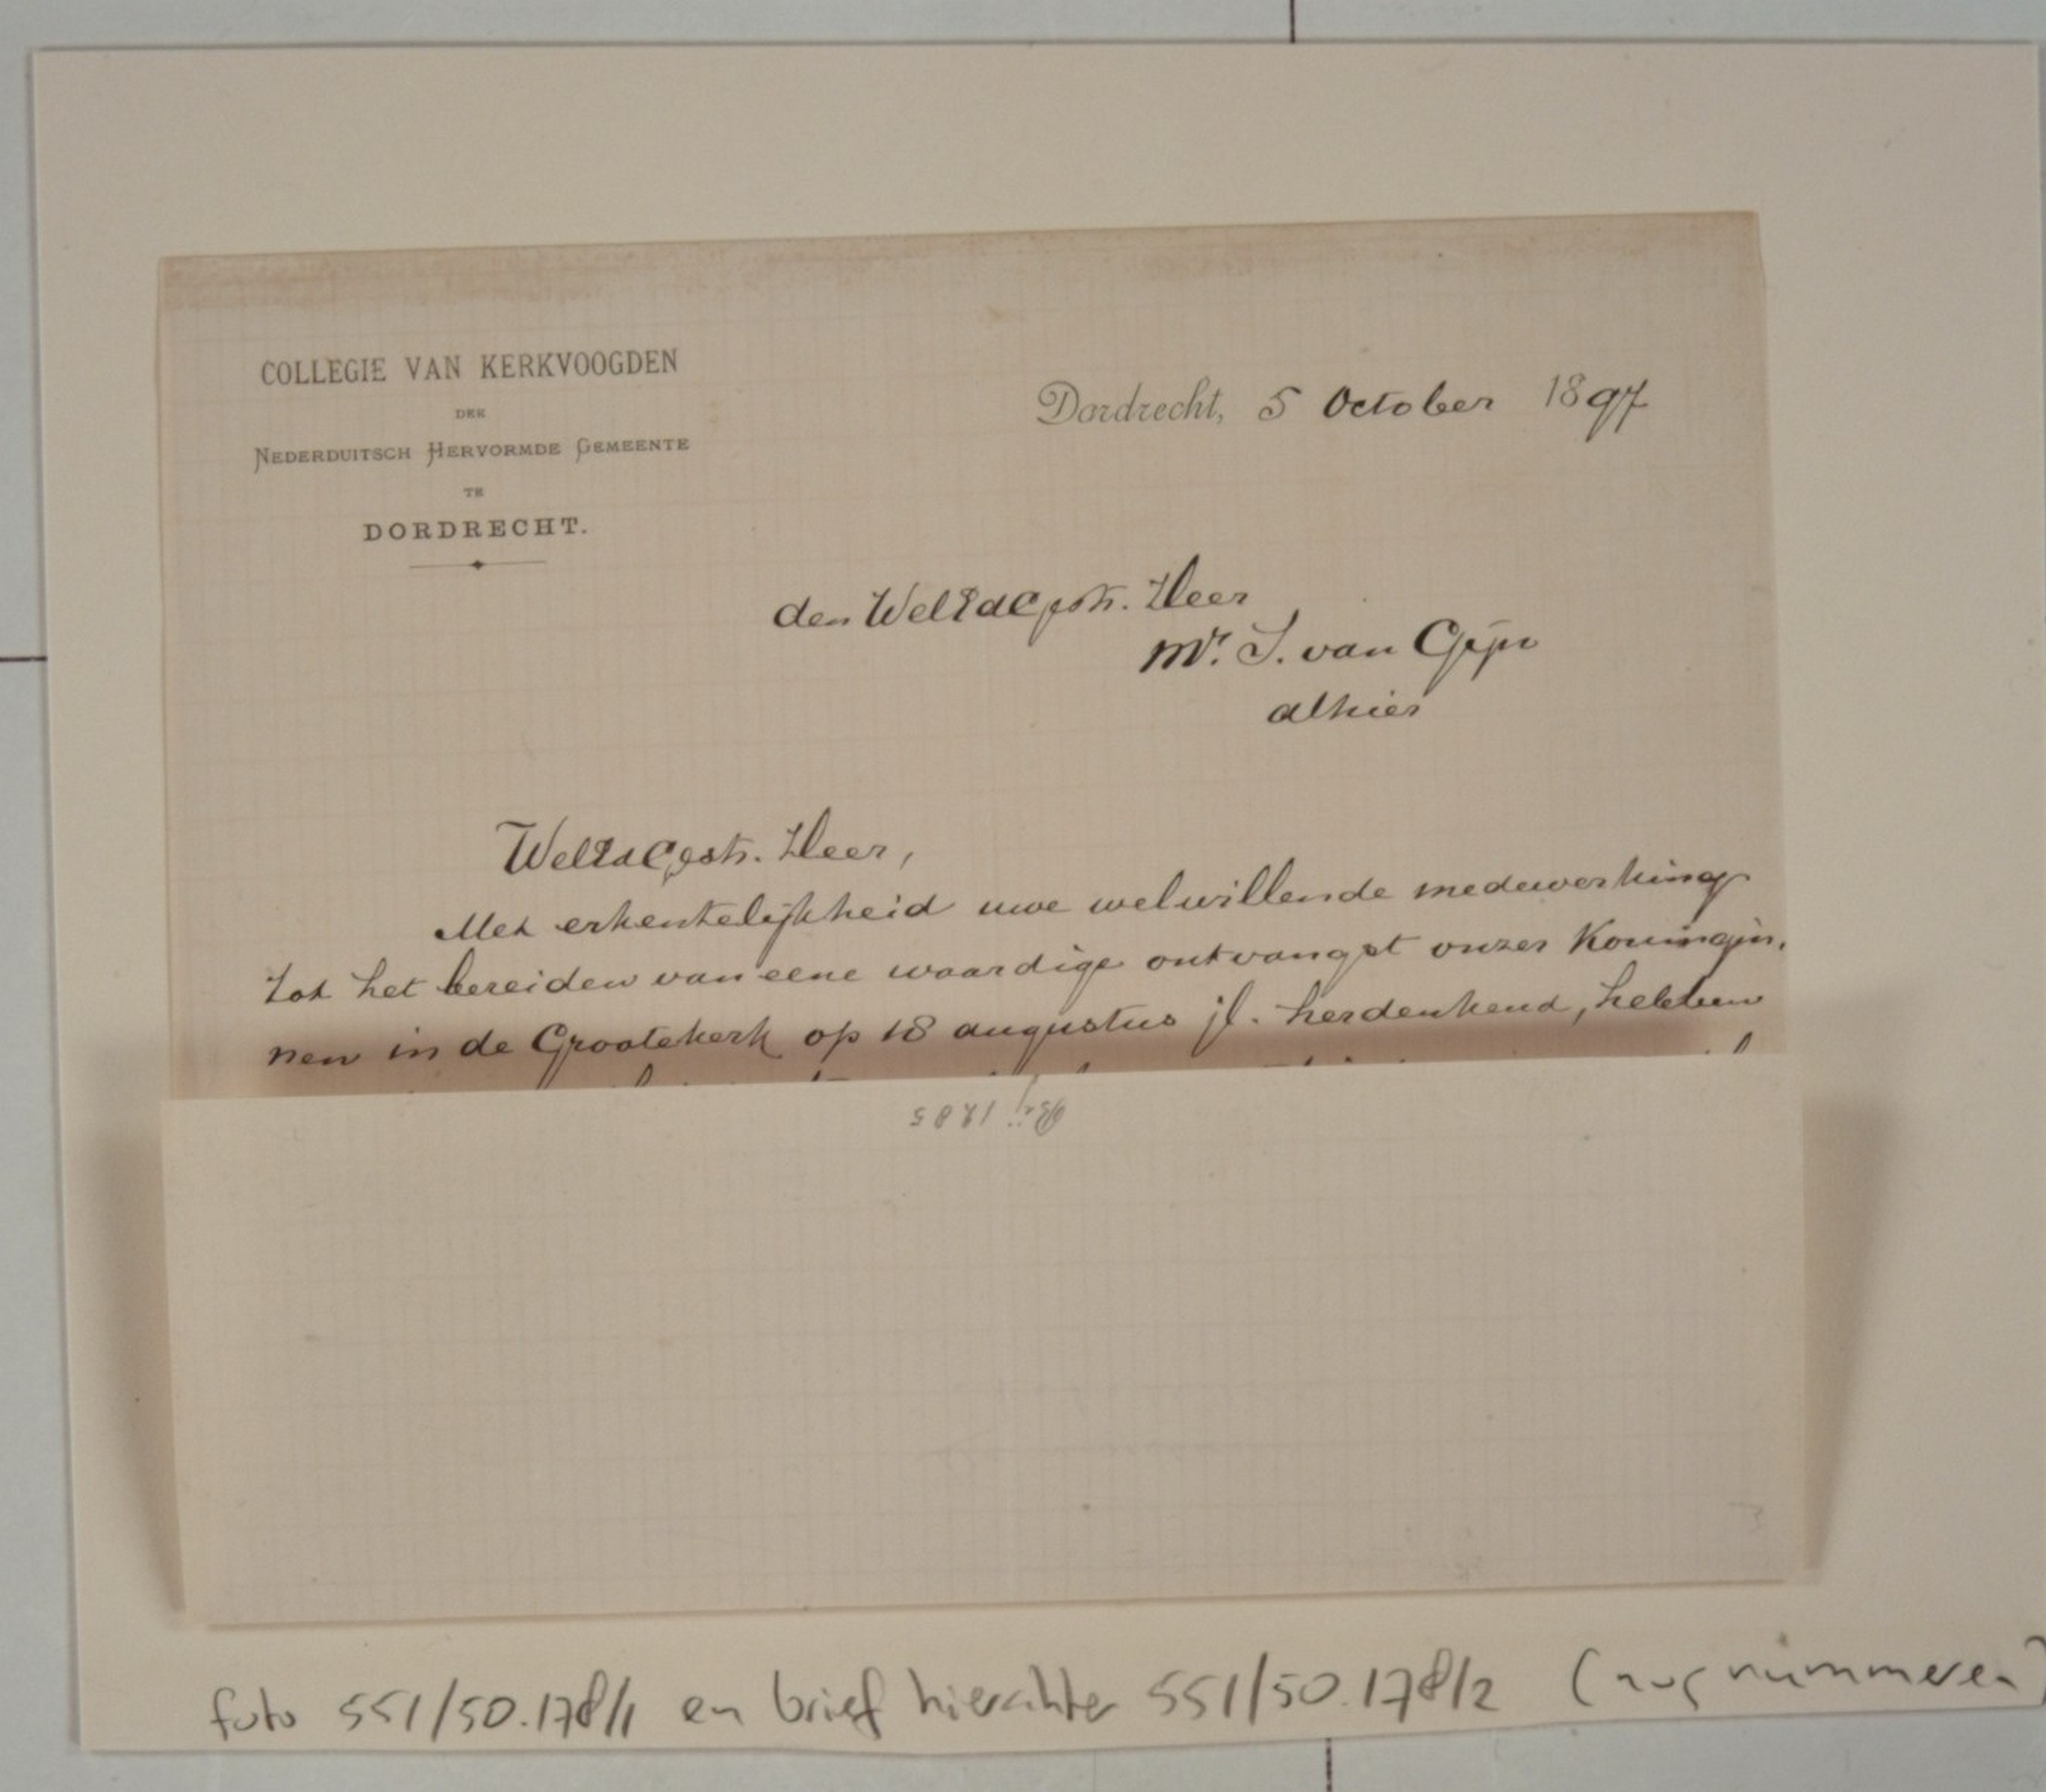 COLLEGIE VAN KERKVOOGDEN
DER
NEDERDUITSCH HERVORMDE GEMEENTE
TE
DORDRECHT.
Dordrecht, 5 October 1897
den WelEdGestr. Heer
Mr. S. van Gijn
alhier
WelEdGestr. Heer,
Met erkentelijkheid uwe welwillende medewerking
tot het bereiden van eene waardige ontvangst onzer Koningin,
nen in de Grootekerk op 18 augustus jl. herdenkend, hebben
1285
foto 551/50.178/1 en brief hierachter 551/50.178/2 (nog nummeren)